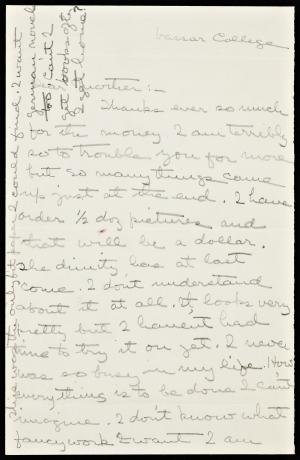 Vassar College
mother:-
Thanks ever so much
for the money I am terribly
so to trouble you for more
but so many things come
up just at the end. I have
order 1/2 doz pictures and
that will be a dollar.
The dimity has at last
come. I don't understand
about it at all. It looks very
pretty but I haven't had
time to try it on yet. I never
was so busy in my life. How
everything is to be done I can't
imagine. I don't know what
fancywork I want I am
only could find. I want
german novel
too can't I
get books after
I get home?